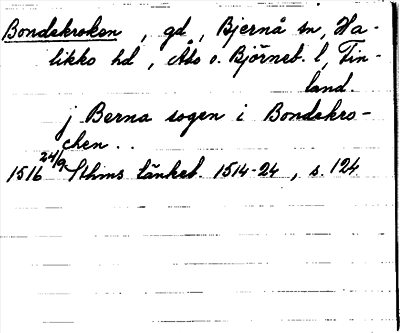 Bondekroken, gd, Bjernå sn, Ha-
likko hd, Åbo o. Björneb. l, Fin-
land.
j Berna sogen i Bondekro-
chen..
1516 24/9 Sthms tänkeb. 1514-24, s. 124.